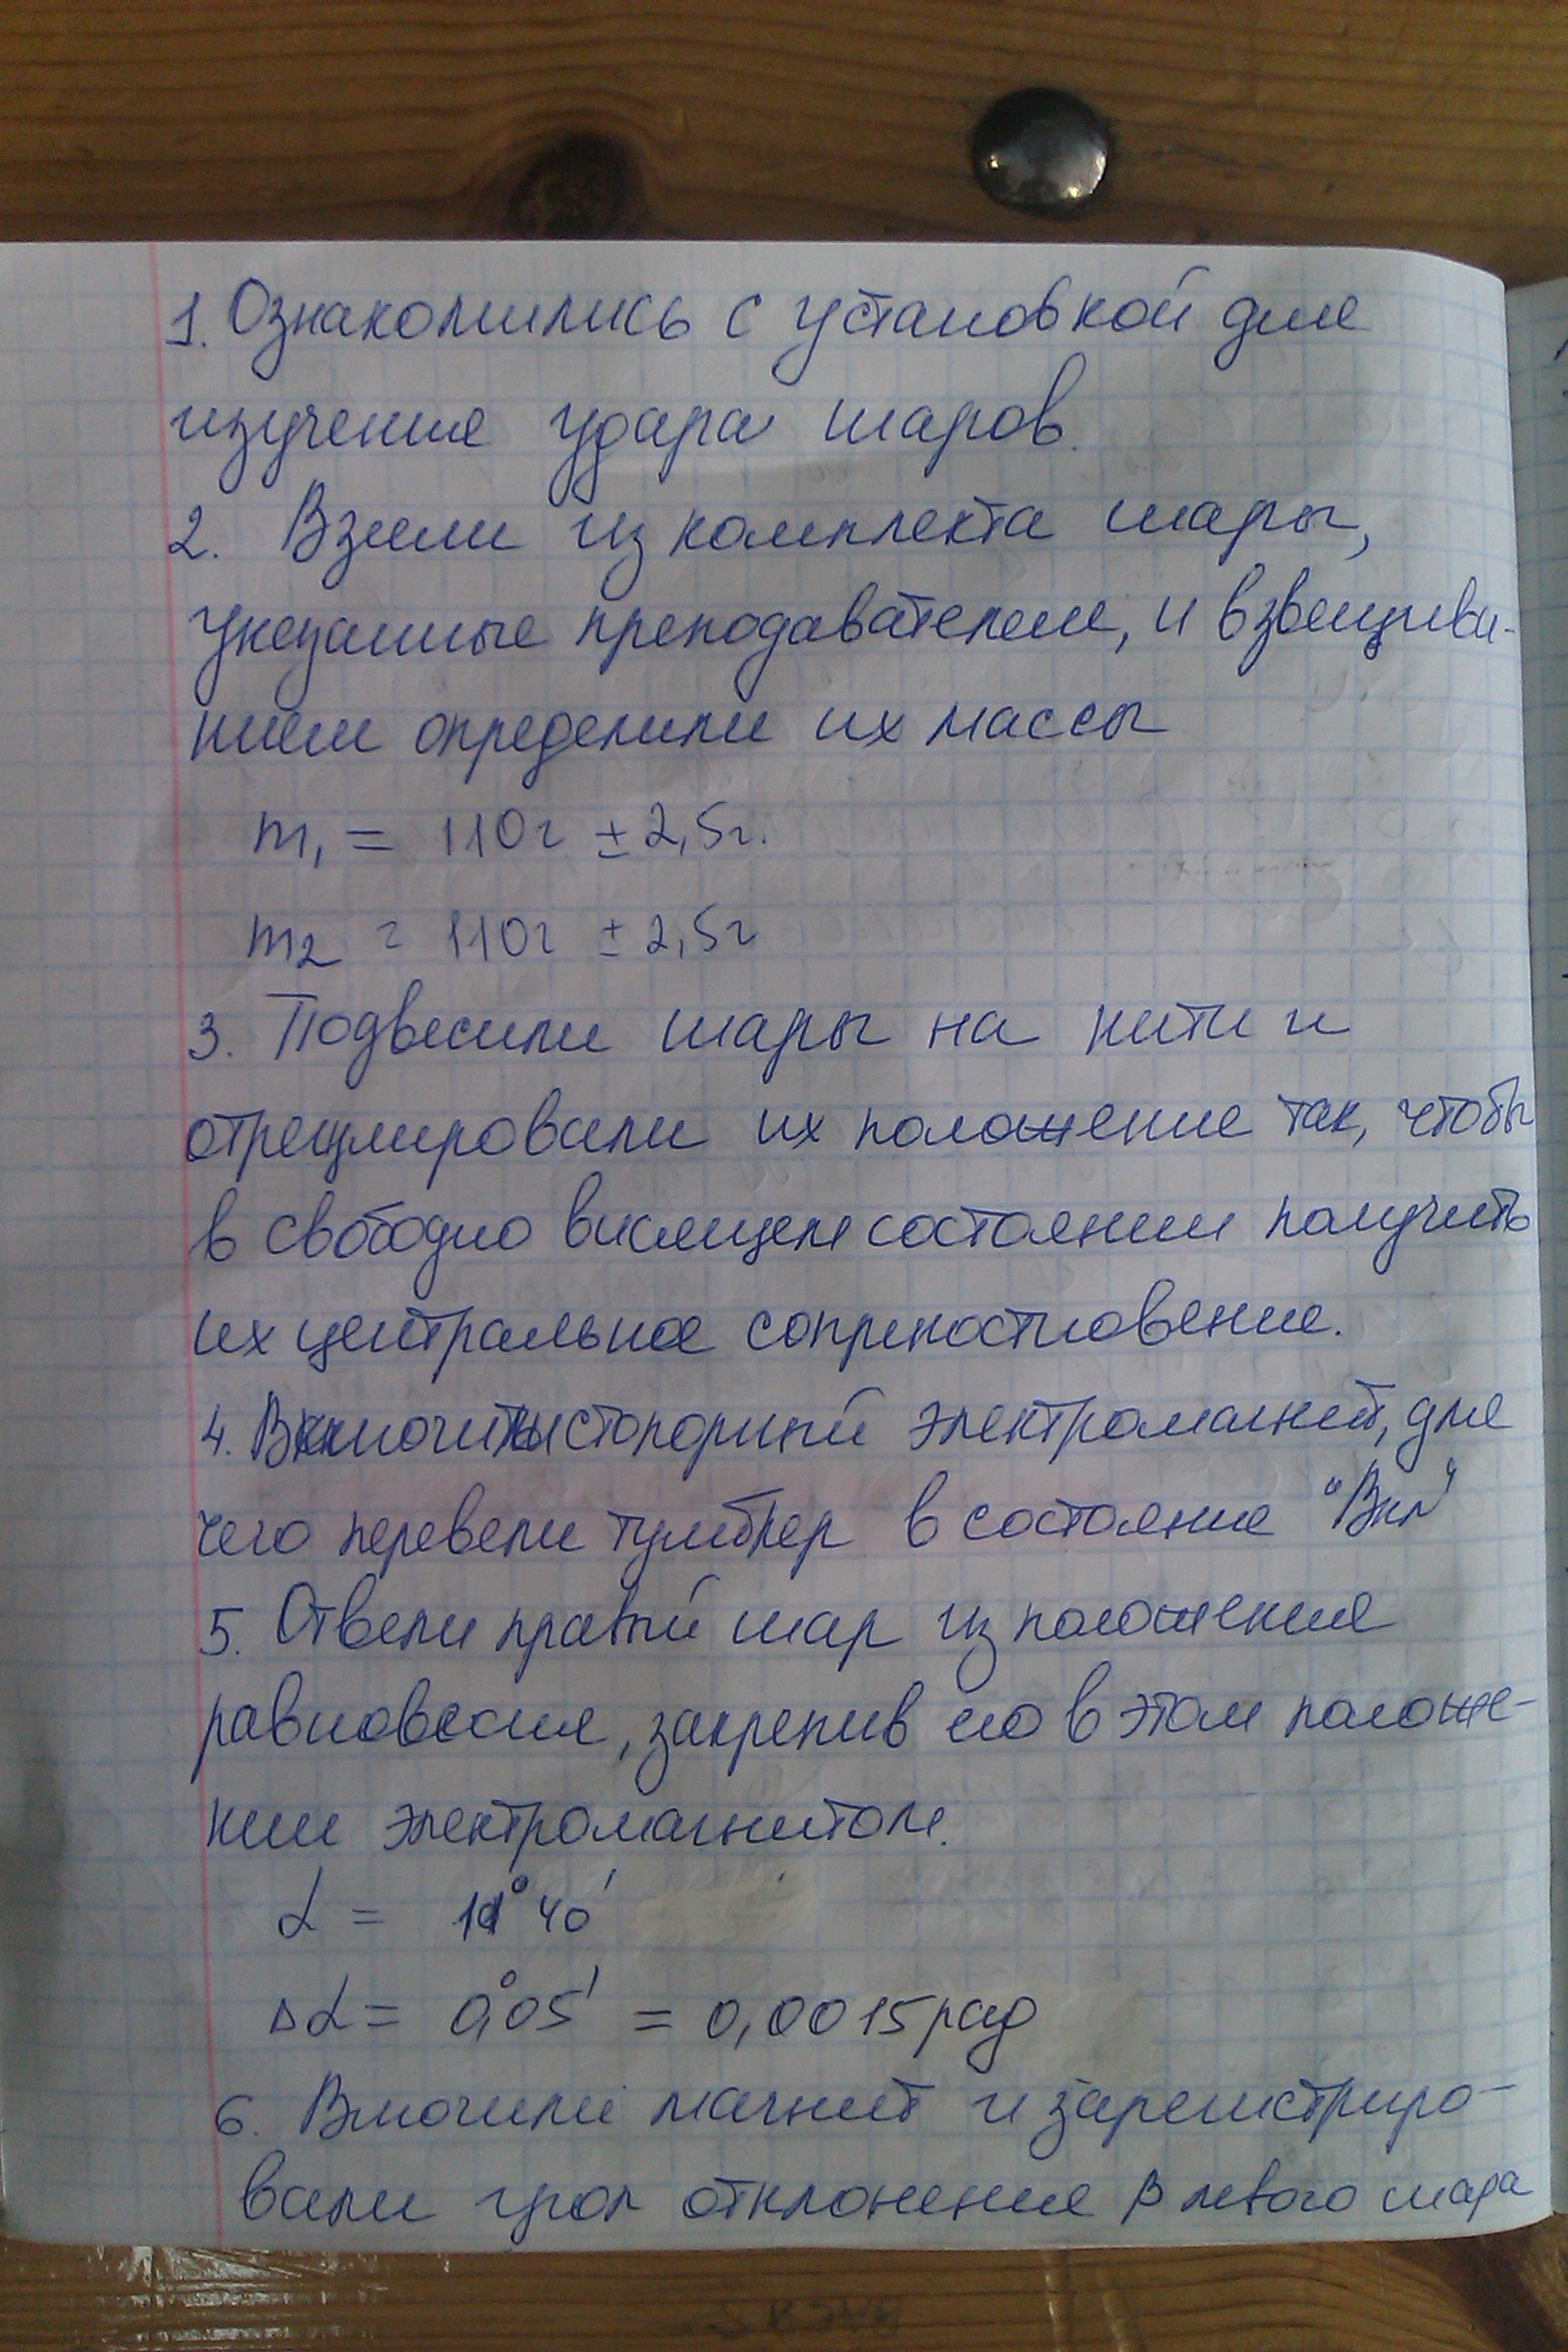 1. Ознакомились с установкой для
изучения удара шаров.
2. Взяли из комплекта шары,
указанные преподавателем, и взвешива-
нием определили их массы
m₁ = 110г ± 2,5г.
m₂ = 110г ± 2,5г
3. Подвесили шары на нити и
отрегулировали их положение так, чтобы
в свободно висящем состоянии получить
их центральное соприкостновение.
4. Включили стопорный электромагнит, для
чего перевели тумблер в состояние "Вкл"
5. Отвели правый шар из положения
равновесия, закрепив его в этом положе-
нии электромагнитом.
α = 11°40'
Δα = 0,°05' = 0,0015рад
6. магнит и зарегистриро-
вали угол отклонения β левого шара